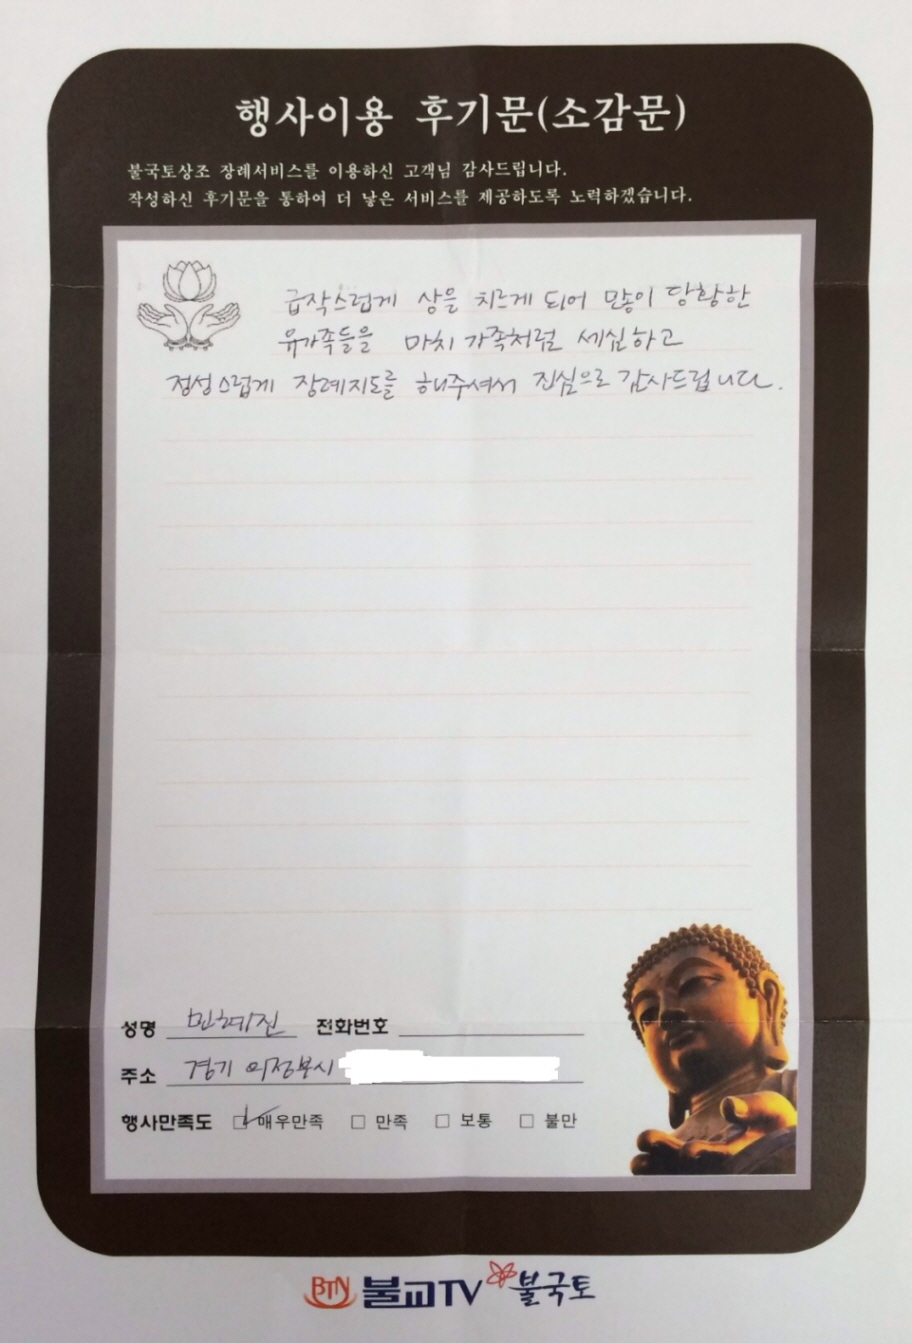 행사이용 후기문(소감문)
불국토상조 장례서비스를 이용하신 고객님 감사드립니다.
작성하신 후기문을 통하여 더 낳은 서비스를 제공하도록 노력하겠습니다.
급작스럽게 상을 치르게 되어 많이 당황한
유가족들을 마치 가족처럼 세심하고
정성스럽게 장례지도를 해주셔서 진심으로 감사드립니다.
성명 민혜진 전화번호
주소 경기 의정부시
행사만족도 매우만족 만족 보통 불만
BTN 불교TV 불국토